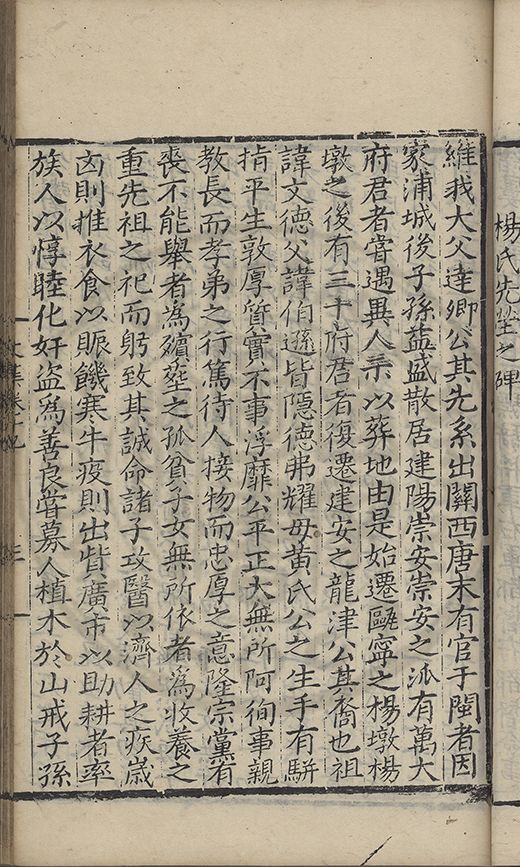 楊氏先塋之碑
維我大父達卿公其先系出關西唐末有官于閩者因
家浦城後子孫益盛散居建陽崇安崇安之派有萬大
府君者甞遇異人示以葬地由是始遷甌寧之楊墩楊
墩之後有三十府君者復遷建安之龍津公其裔也祖
諱文德父諱伯遜皆隱德弗耀母黃氏公之生手有駢
指平生敦厚質實不事浮靡公平正大無所阿徇事親
教長而孝弟之行篤待人接物而忠厚之意隆宗黨有
喪不能舉者為殯塟之孤貧子女無所依者為收養之
重先祖之祀而躬致其誠命諸子攻醫以濟人之疾嵗
凶則推衣食以賑饑寒牛疫則出貲廣市以助耕者率
族人以惇睦化奸盜為善良甞募人植木於山戒子孫
文集卷十九